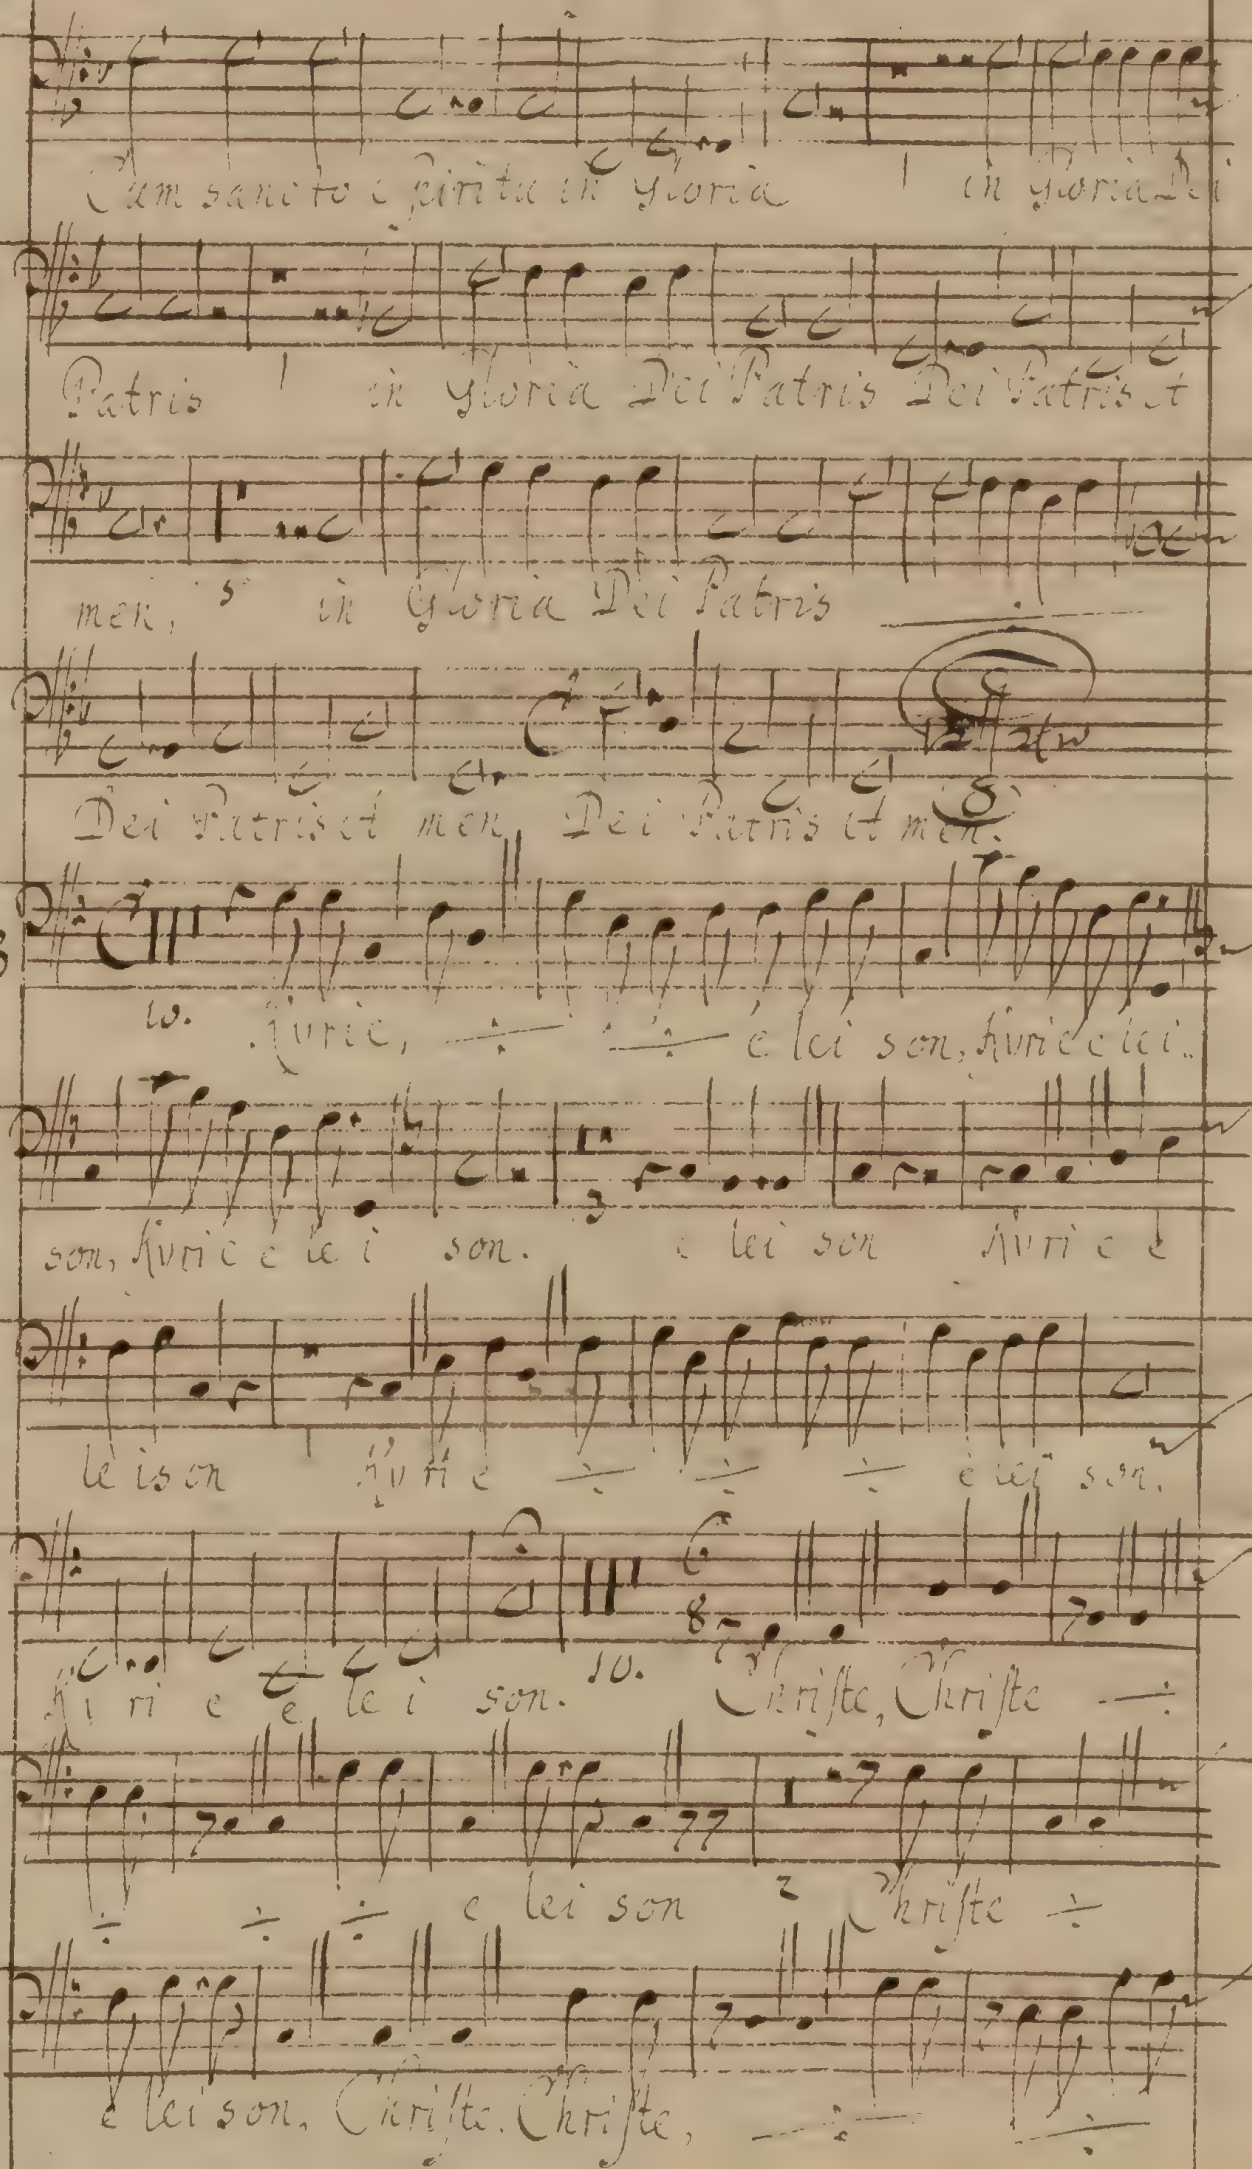 Cum sancto spiritu in Gloria 1 in Gloria Dei
Patris 1 in Gloria Dei Patris Dei Patris et
men, 5 in Gloria Dei Patris ÷
Dei Patris et men, Dei Patris et men.
10. Kyrie, ÷ ÷ e lei son, Kyrie e lei..
son, Kyrie e lei son. 3 e lei son Kyri e e
leison 1 Kyri e ÷ ÷ ÷ e lei son.
Kyri e e lei son. 10. Christe, Christe ÷
÷ ÷ ÷ e lei son 2 Christe ÷
e leison. Christe. Christe, ÷ ÷